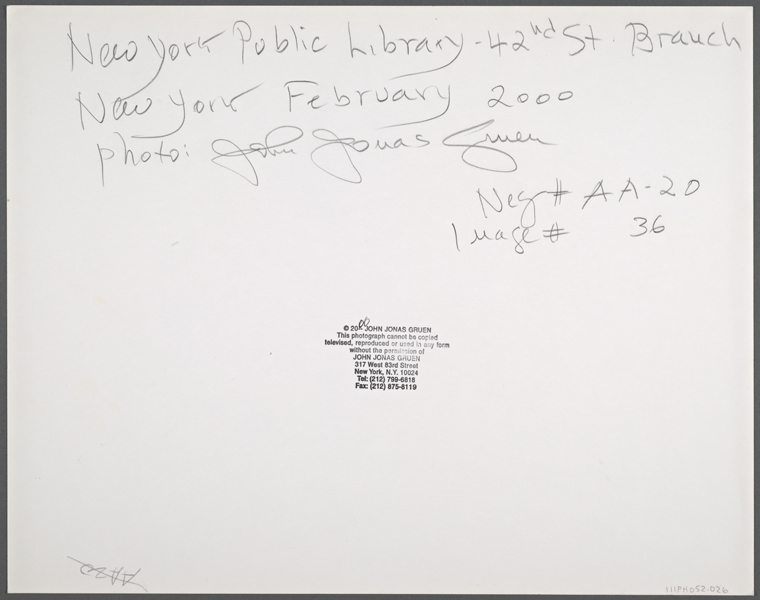 New York Public Library - 42nd St. Branch
New York February 2000
photo: John Jonas Gruen
Neg # AA-20
Image # 36
© 2000 JOHN JONAS GRUEN
This photograph cannot be copied
televised, reproduced or used in any form
without the permission of
JOHN JONAS GRUEN
317 West 83rd Street
New York, N.Y. 10024
Tel: (212) 799-6818
Fax: (212) 875-8119
AA20
111PH052.026